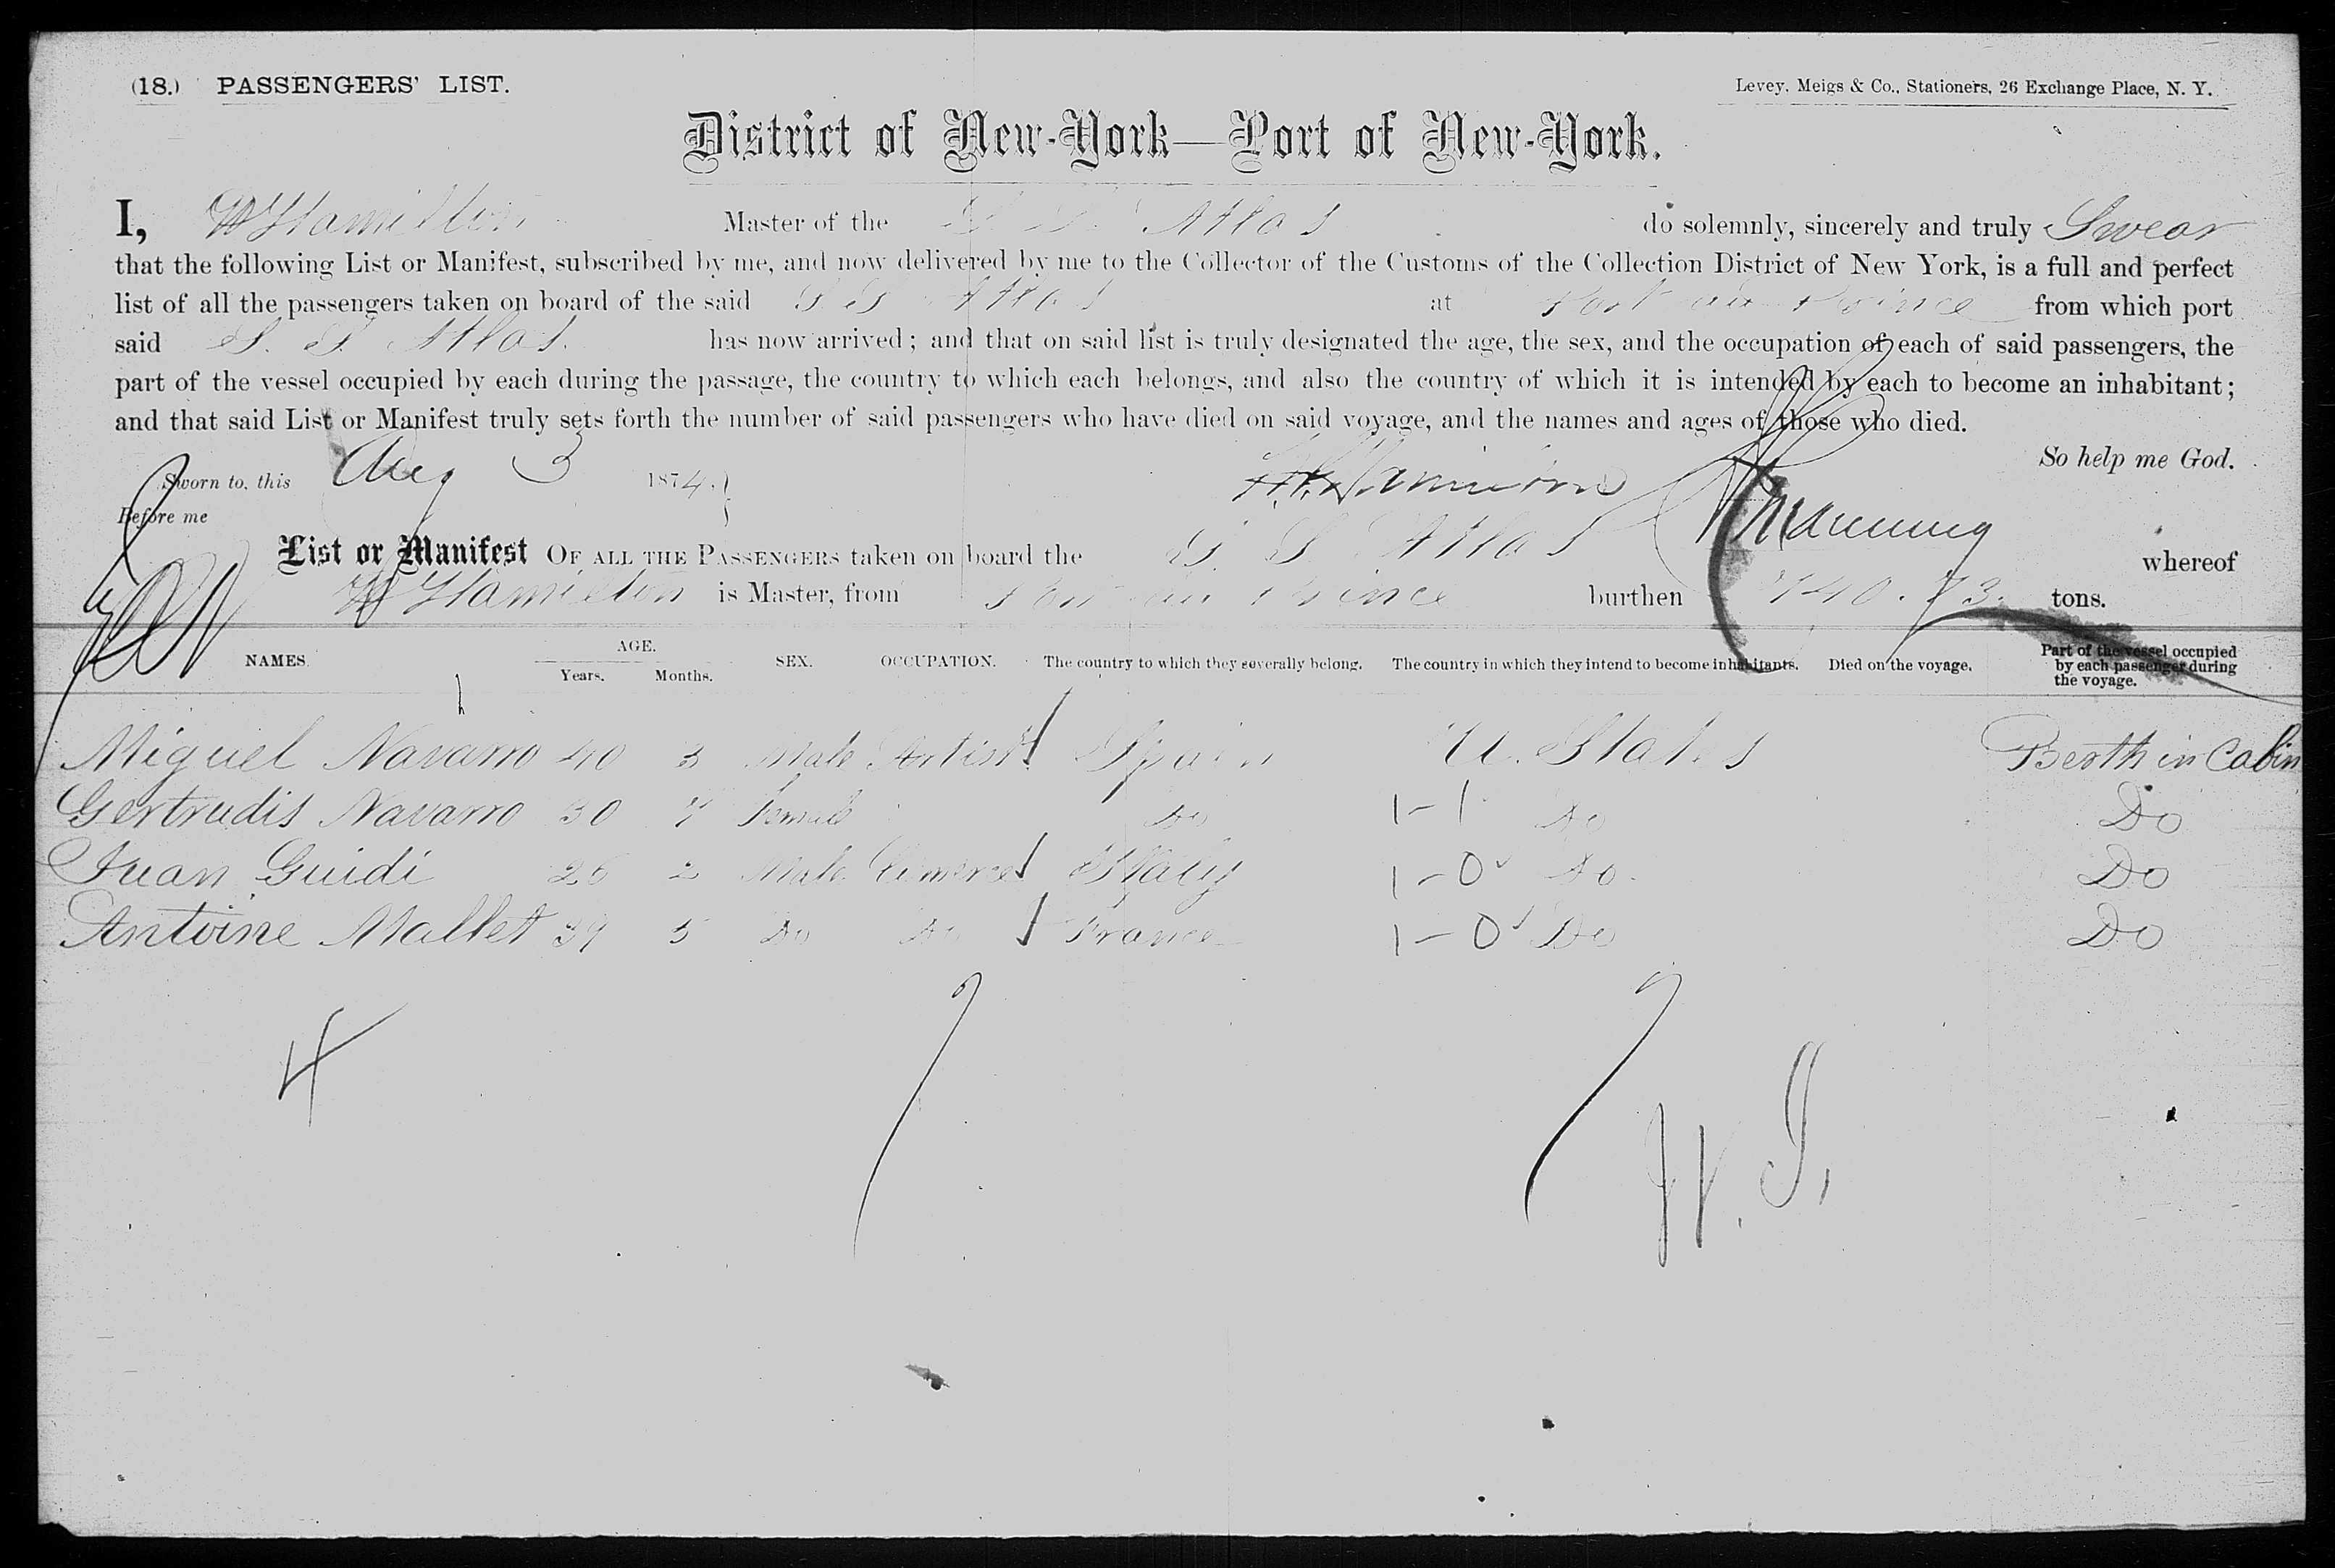 (18.) PASSENGERS' LIST.
Levey, Meigs & Co., Stationers, 26 Exchange Place, N. Y.
District of New-York—Port of New-York.
I, W Hamilton Master of the S. S. Atlas do solemnly, sincerely and truly Swear
that the following List or Manifest, subscribed by me, and now delivered by me to the Collector of the Customs of the Collection District of New York, is a full and perfect
list of all the passengers taken on board of the said S S Atlas at Port au Prince from which port
said S. S. Atlas has now arrived; and that on said list is truly designated the age, the sex, and the occupation of each of said passengers, the
part of the vessel occupied by each during the passage, the country to which each belongs, and also the country of which it is intended by each to become an inhabitant;
and that said List or Manifest truly sets forth the number of said passengers who have died on said voyage, and the names and ages of those who died.
So help me God.
Sworn to, this Aug 3 1874.
Before me
List or Manifest OF ALL THE PASSENGERS taken on board the S. S. Atlas whereof
W Hamilton is Master, from Port au Prince burthen 740.73. tons.
NAMES. AGE. Years. Months. SEX. OCCUPATION. The country to which they severally belong. The country in which they intend to become inhabitants. Died on the voyage. Part of the vessel occupied by each passenger during the voyage.
Miguel Navarro 40 3 Male Artist Spain U. States Berth in Cabin
Gertrudis Navarro 30 7 Female Do 1-1 Do Do
Juan Guidi 26 2 Male Comerce Italy 1-0 Do Do
Antoine Mallet 39 5 Do Do France 1-0 Do Do
4